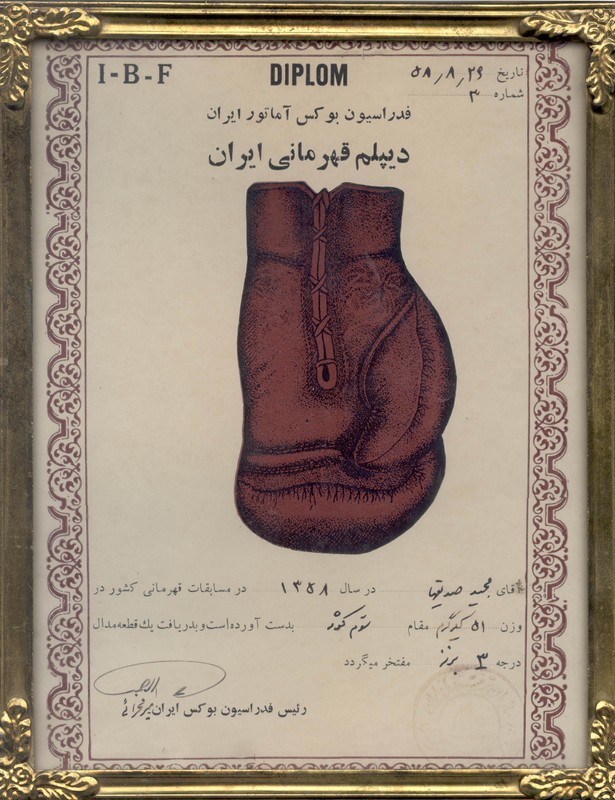 I-B-F
DIPLOM
تاریخ ۵۸/۸/۲۹
شماره ۳
فدراسیون بوکس آماتور ایران
دیپلم قهرمانی ایران
آقای مجید در سال ۱۳۵۸ در مسابقات قهرمانی کشور در
وزن ۵۱ کیلوگرم مقام سوم کشور بدست آورده‌است و بدریافت یك قطعه مدال
درجه ۳ برنز مفتخر میگردد
رئیس فدراسیون بوکس ایران